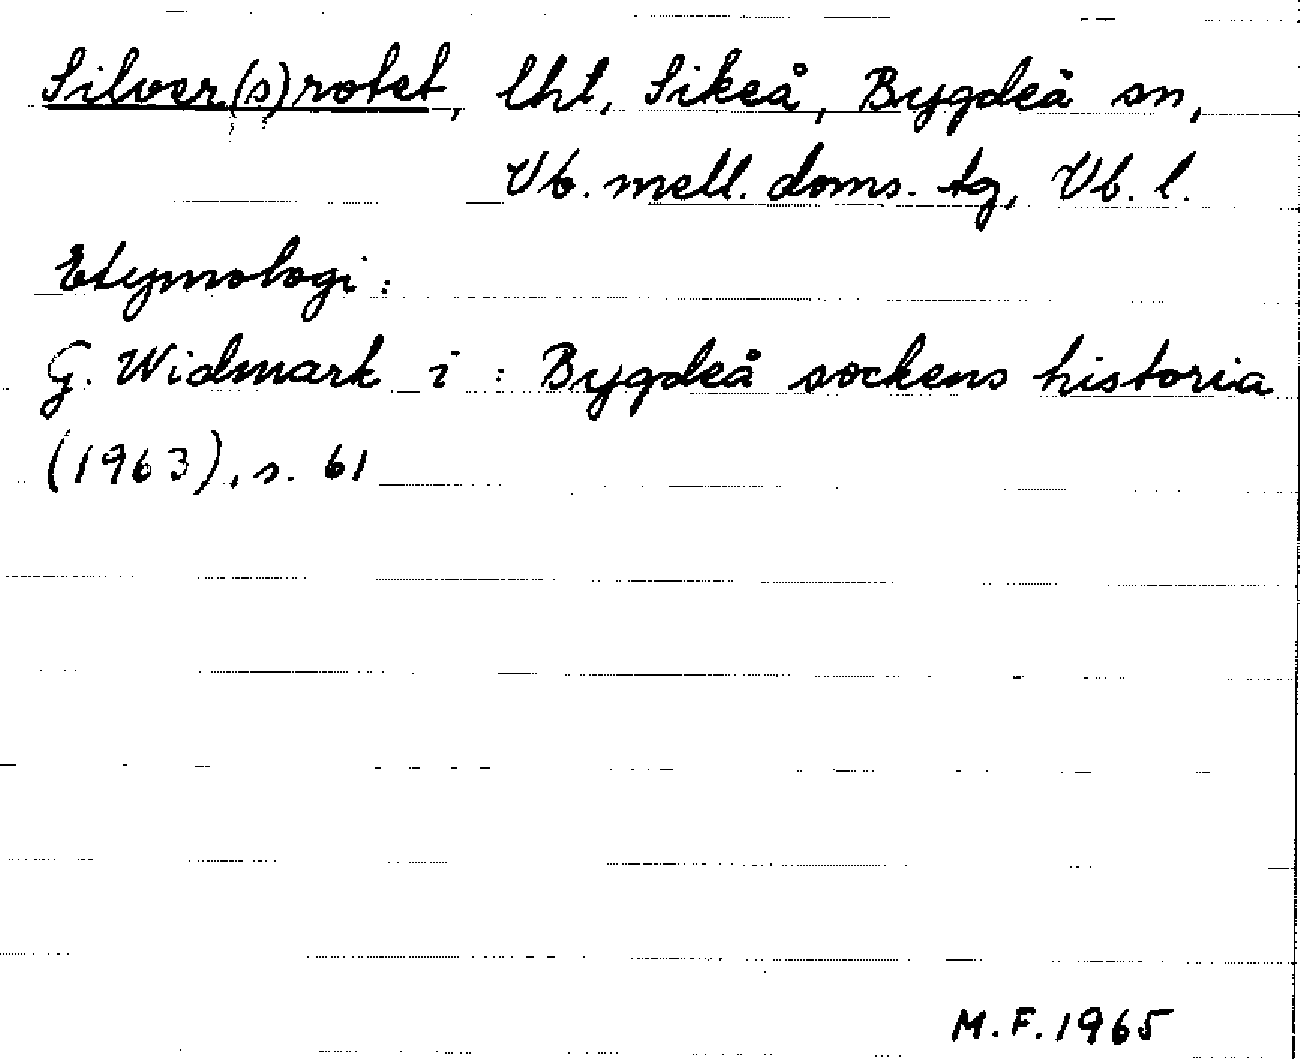 Silver(s)rotet, lht, Sikeå, Bygdeå sn,
Vb. mell. doms. tg, Vb. l.
Etymologi:
G. Widmark i: Bygdeå sockens historia
(1963), s. 61
M.F. 1965